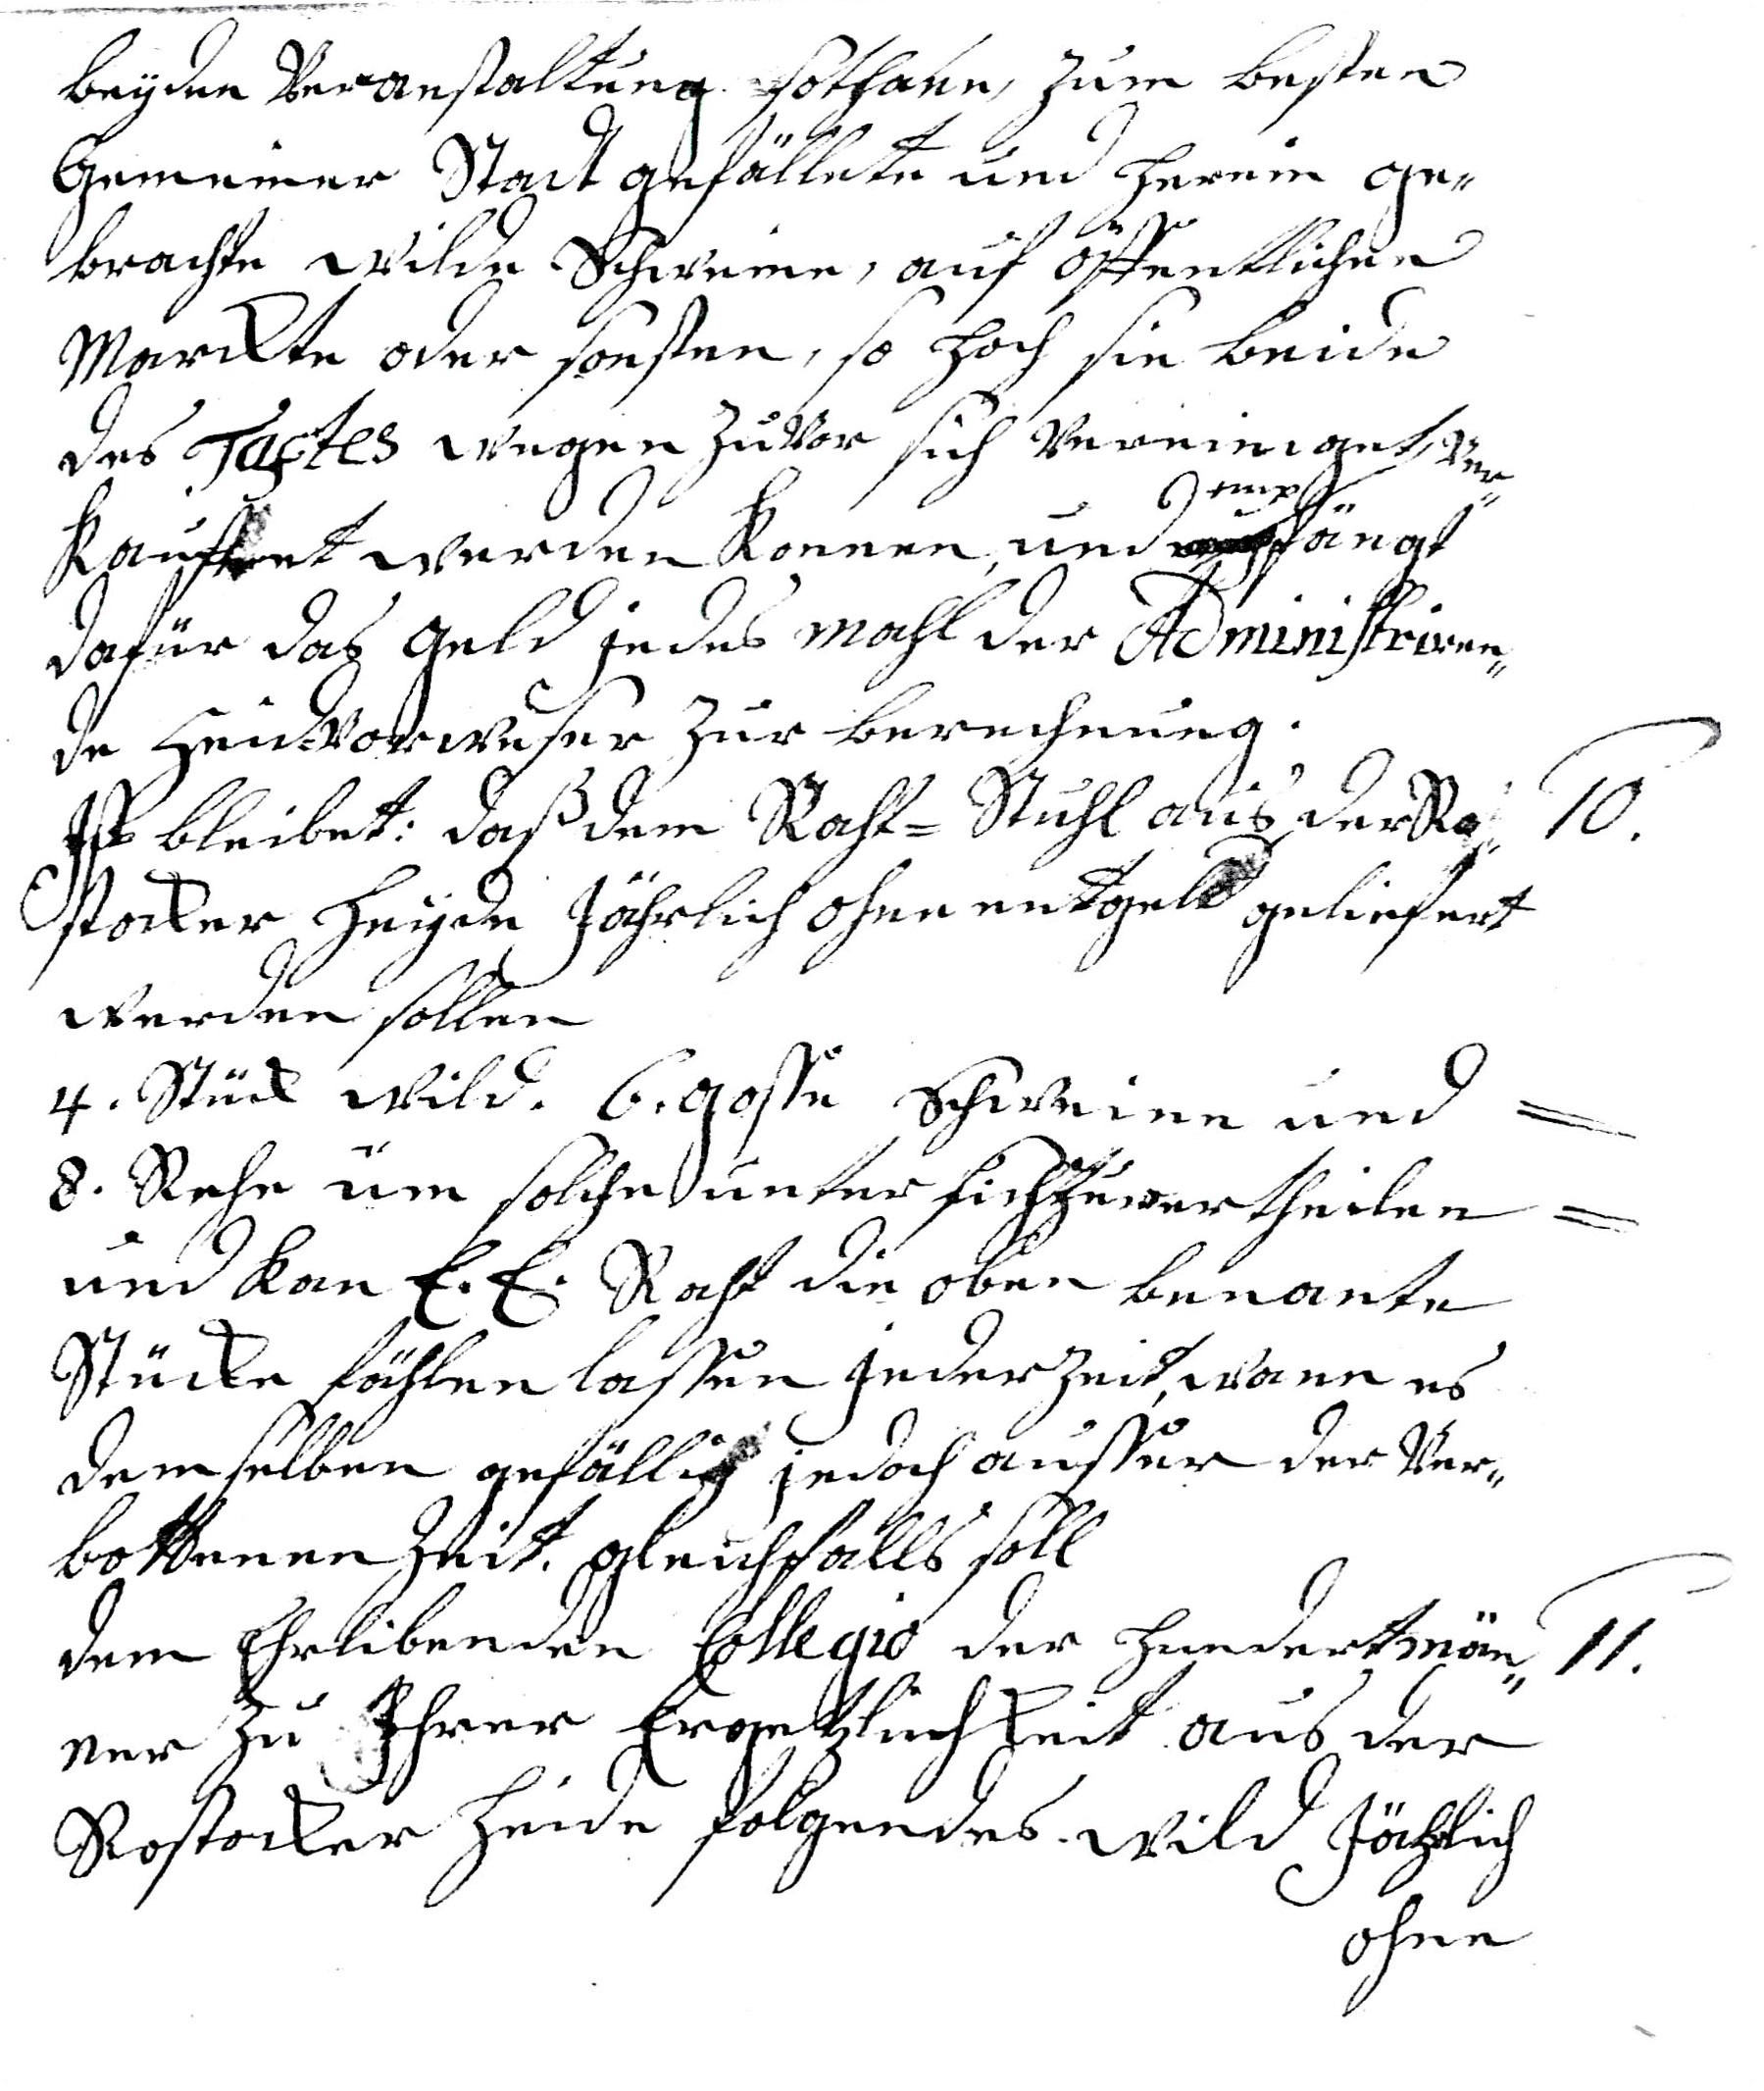 beyden Veranstaltung sothane, zum besten
Gemeiner Stadt gefällete und herein ge„
brachte wilde Schweine, auf öffentlichen
Marckte oder sonsten, so hoch sie beide
des Taxtes wegen zuvor sich vereiniget, ver„
kauffet werden können, und empfängt
dafür das geld jedes mahl der Administriren„
de Heid-Vorweser zur berechnung.
Es bleibet: daß dem Raht= Stuhl aus der Ro„ 10.
stocker Heyde Jährlich ohne entgeld geliefert
werden sollen
4. Stück Wild. 6. grosse Schweine und =
8. Rehe üm solche unter sich zu vertheilen =
und kan E. E. Raht die oben benante
Stücke fählen lassen jederzeit, wann es
demselben gefällig jedoch ausser der Ver„
bottenen Zeit. gleichfalls soll
dem Ehrlibenden Collegio der Hundertmän„ 11.
ner zu Ihrer Ergetzlichkeit aus der
Rostocker Heide folgendes Wild Jährlich
ohne